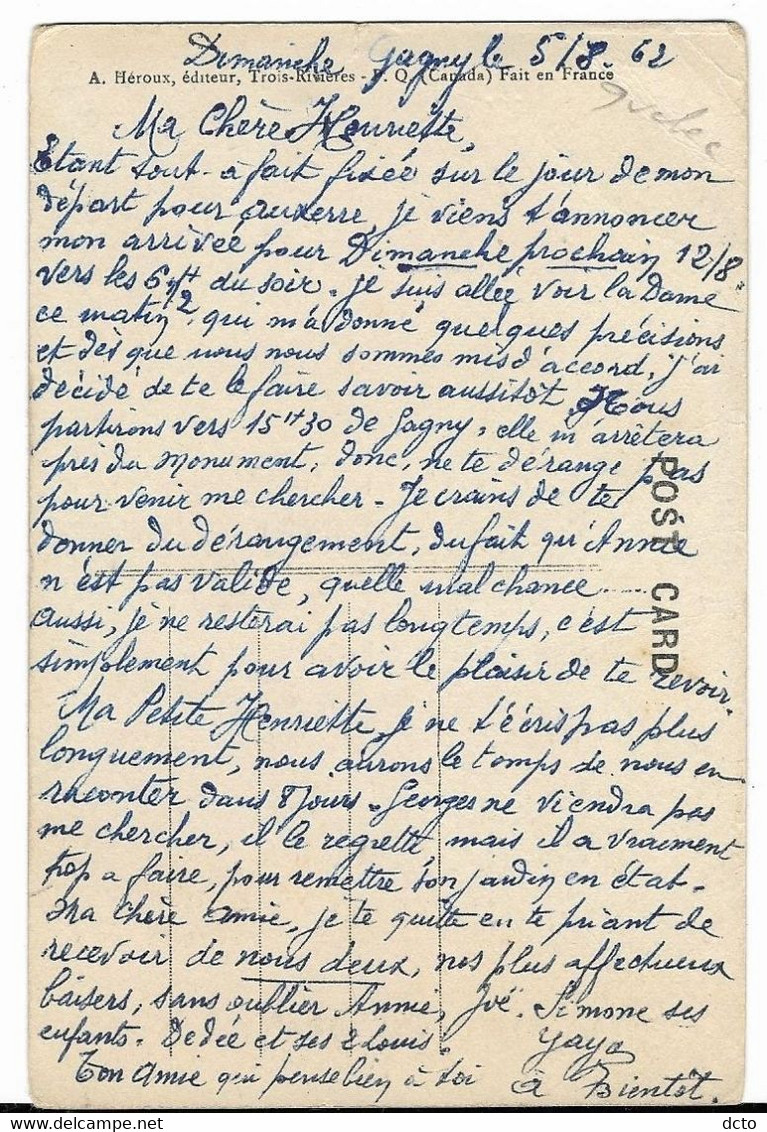 Dimanche Gagny le 5/8.62
A. Héroux, éditeur, Trois-Rivières - P. Q. (Canada) Fait en France
Quebec
Ma Chère Henriette,
Etant tout-à fait fixée sur le jour de mon
départ pour Auxerre, je viens t'annoncer
mon arrivée pour Dimanche prochain 12/8
vers les 6 H 1/2 du soir. je suis allée voir la Dame
ce matin, qui m'a donné quelques précisions
et dès que nous nous sommes mis d'accord, j'ai
décidé de te le faire savoir aussitôt. Nous
partirons vers 15 H 30 de Gagny, elle m'arrêtera
près du Monument, donc, ne te dérange pas
pour venir me chercher - Je crains de te
donner du dérangement, du fait qu'Annie
n'est pas valide, quelle malchance ......
aussi, je ne resterai pas longtemps, c'est
simplement pour avoir le plaisir de te revoir.
Ma Petite Henriette, je ne t'écris pas plus
longuement, nous aurons le temps de nous en
raconter dans 8 jours - Georges ne viendra pas
me chercher, il le regrette, mais il a vraiment
trop a faire, pour remettre son jardin en état -
Ma chère amie, je te quitte en te priant de
recevoir de nous deux, nos plus affectueux
baisers, sans oublier Annie, Joë. Simone ses
enfants. Dedée et ses 2 Louis.
Yaya
Ton amie qui pense bien à toi
à Bientôt.
POST CARD
dcto
Delcampe.net